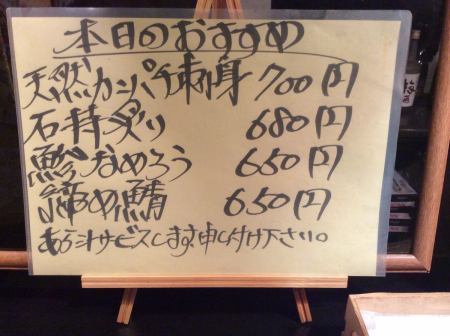 本日のおすすめ
天然カンパチ刺身 700円
石持炙り 680円
鯵なめろう 650円
締め鯖 650円
あら汁サービスします。申し付け下さい。
梅酒